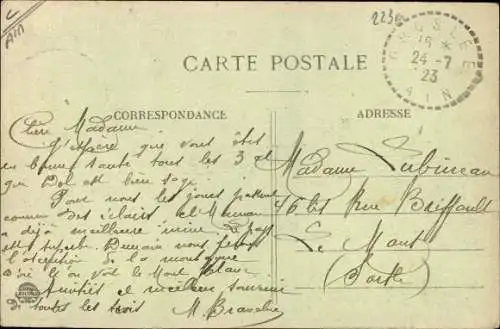 L
AIN
223
CARTE POSTALE
GROSLEE
16 *
24 -7
23
AIN
CORRESPONDANCE
ADRESSE
Chère Madame
J'espère que vous êtes
en bonne santé tous les 3 et
que Bol est bien sage.
Pour nous les jours passent
comme des éclairs et Maman
a déjà meilleure mine. Le pays
est superbe. Demain nous ferons
l'ascension de la montagne
d'où l'on voit le Mont Blanc
Amitiés et meilleur souvenir
de toutes les trois
M.
Madame Lubineau
46 bis Rue Briffault
Le Mans
(Sarthe)